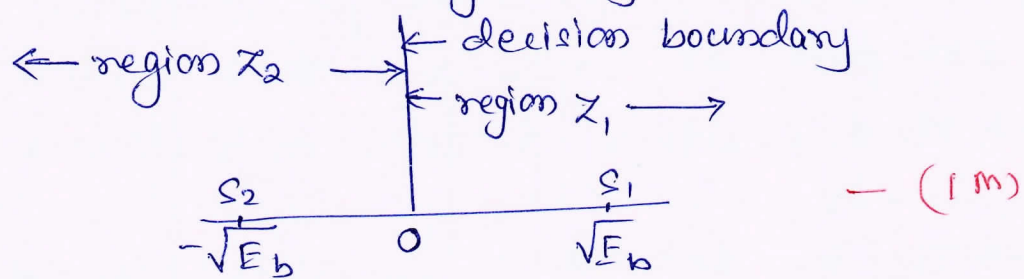 ← decision boundary
← region Z2 →
← region Z1 →
S2 S1 - (1 m)
-√Eb 0 √Eb